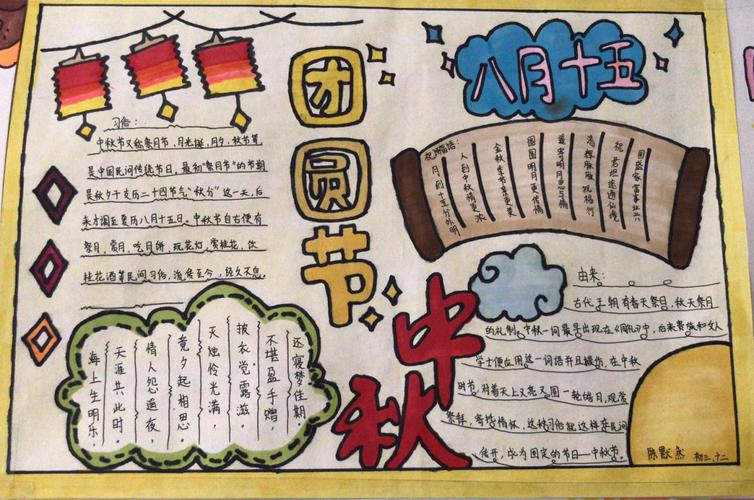 团圆节
八月十五
习俗：
中秋节又称祭月节、月光诞、月夕、秋节等
是中国民间传统节日。最初“祭月节”的节期
是秋夕干支历二十四节气“秋分”这一天，后
来才调至夏历八月十五日。中秋节自古便有
祭月、赏月、吃月饼、玩花灯、赏桂花、饮
桂花酒等民间习俗，流传至今，经久不息。
祝福语：
月到十五分外明
人到中秋情更浓
金秋季节景更美
圆圆明月更传情
最寄明月思与情
清辉脉脉祝福行
祝君坦途通仙境
国盛家富事业兴
海上生明乐
天涯共此时。
情人怨遥夜，
竟夕起相思
灭烛怜光满，
披衣觉露滋。
不堪盈手赠，
还寝梦佳期。
中秋
由来：
古代王朝有春天祭日，秋天祭月
的礼制，中秋一词最早出现在《周礼》中，后来贵族和文人
学士便应用这一词语并且模仿，在中秋
时节，对着天上又亮又圆一轮皓月，观赏
祭拜，寄托情怀，这种习俗就这样在民间
传开，成为固定的节日—中秋节。
陈默然 初三.十二